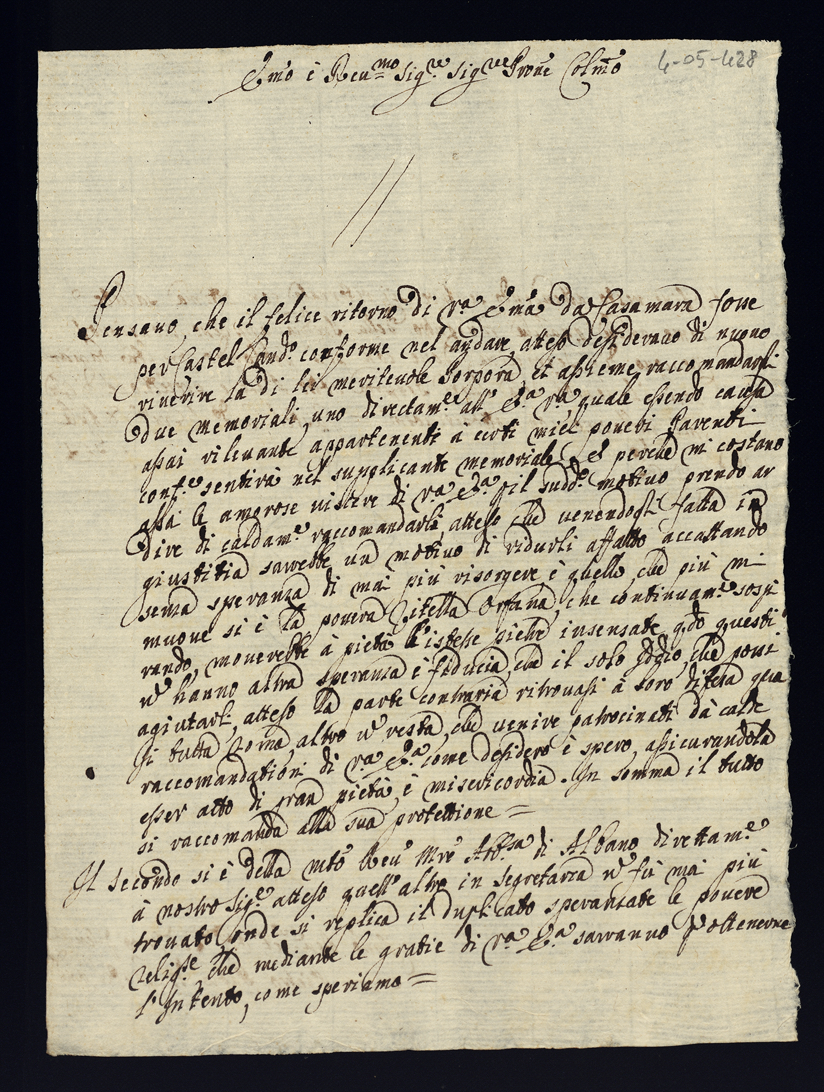 Emō è Reu.mo Sig.re Sig.re Prone Colmō
4-05-428
Pensauo che il felice ritorno di V.a Emā da Casamara fosse
per Castel Gand.o conforme nel andare, atteso desiderauo di nuouo
riuerire la di lei meriteuole Porpora et assieme raccomandarli
due memoriali, uno directam.e all' E.a V.a quale essendo causa
assai rileuante appartenenti à certi miei poueri Parenti
conf.e sentirà nel supplicante memoriale è perche mi costano
assai le amorose uiscere di V.a E.a p il sudd.o motiuo prendo ar
dire di caldam.e raccomandarle atteso che uenendogli fatta in
giustitia sarrebbe un motiuo di ridurli affatto accattando
senza speranza di mai più risorgere è quello che più mi
muoue si è la pouera Zitella Orfana che continuam.e sospi
rando, mouerebbe à pietà l'istesse pietre insensate, qdo questi
n hanno altra speranza è fiducia, che il solo Iddio, che possi
agiutarli, atteso la parte contraria ritrouasi à loro difesa qua
si tutta Roma, altro n resta che uenire patrocinati dà calde
raccomandationi di V.a E.a come desidero è spero, assicurandola
esser atto di gran pietà è misericordia. In somma il tutto
si raccomanda alla sua protettione =
Il secondo si è della Mtō Reu Mre Abb.sa di Albano direttam.e
à nostro Sig.e atteso quell'altro in segretaria n fù mai più
trouato, onde si replica il duplicato speranzate le pouere
Relig.se che mediante le gratie di V.a E.a sarranno p ottenerne
l'Intento, come speriamo =